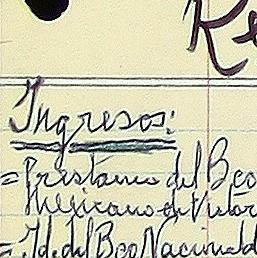 Re
Ingresos:
= Prestamo del Bco
Mexicano de Vistor
= Id. del Bco Nacional d